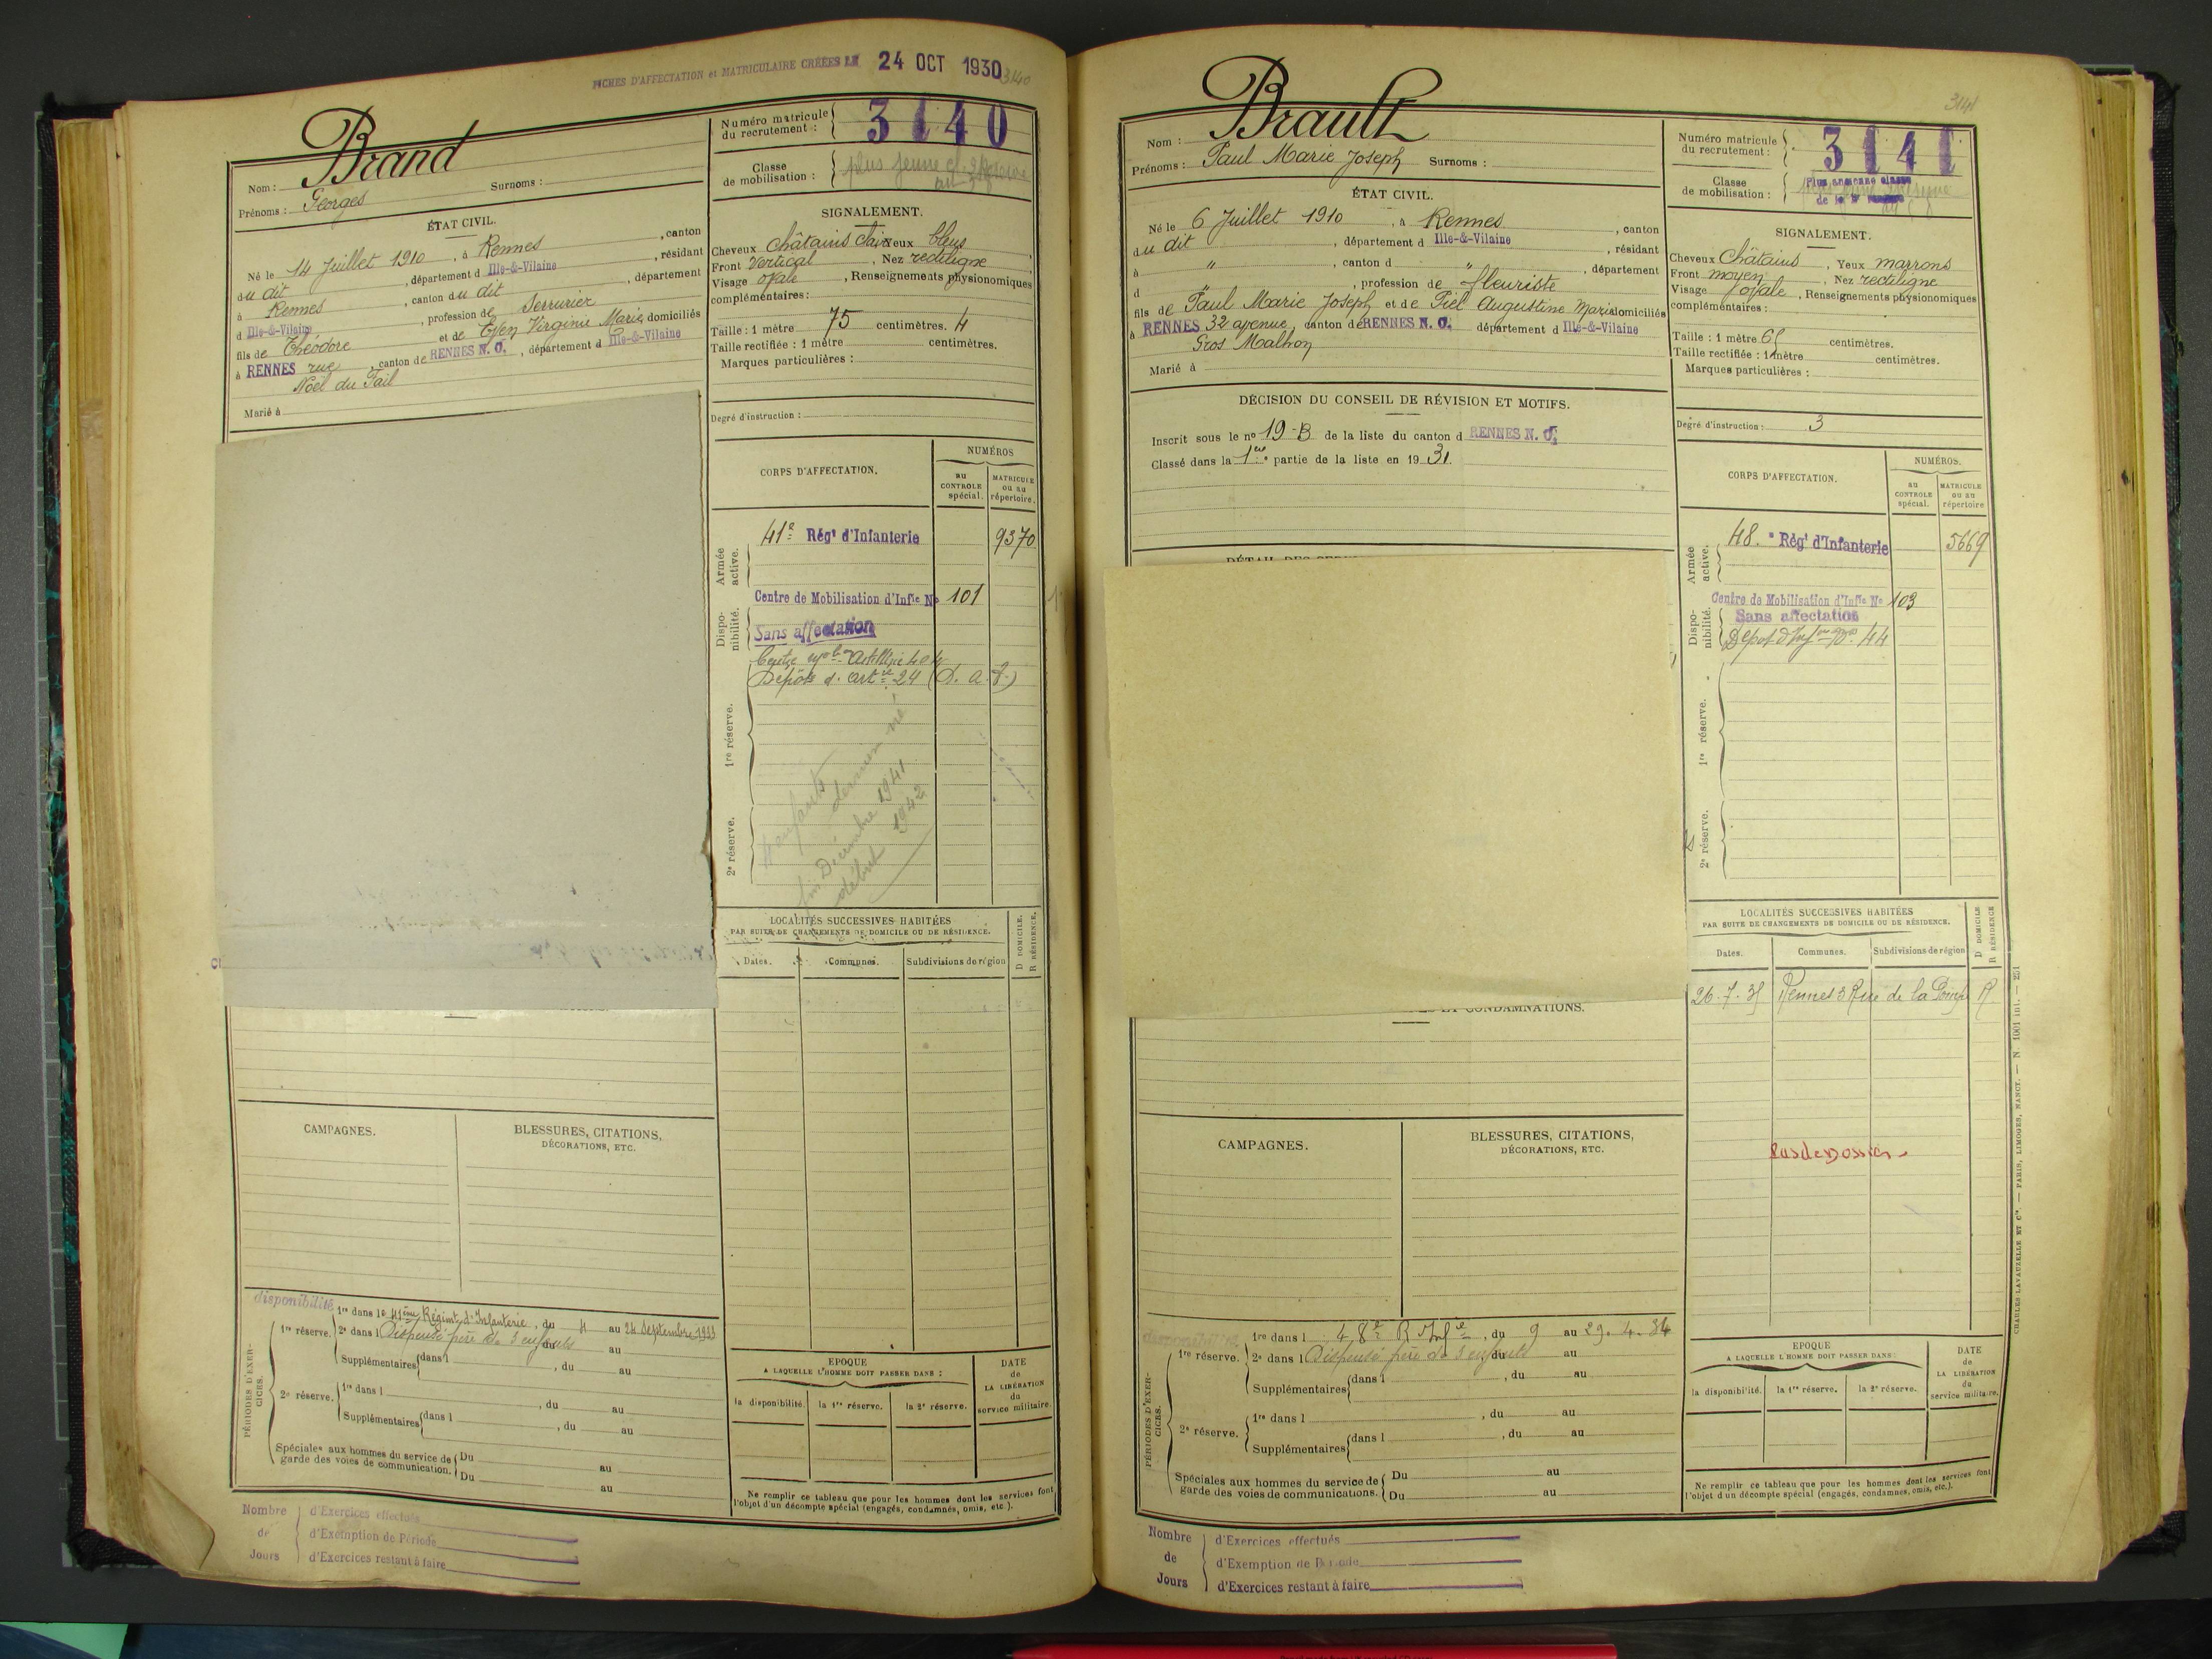 FICHES D'AFFECTATION et MATRICULAIRE CRÉÉES LE 24 OCT 1930
3140
Brand
Nom :
Prénoms : Georges Surnoms :
ÉTAT CIVIL.
Né le 14 Juillet 1910, à Rennes, canton
du dit, département d Ille-&-Vilaine, résidant
à Rennes, canton du dit, département
d Ille-&-Vilaine, profession de Serrurier
fils de Théodore et de Even Virginie Marie domiciliés
à RENNES rue canton de RENNES N. O., département d Ille-&-Vilaine
Noël du Fail
Marié à
Numéro matricule du recrutement : 3140
Classe de mobilisation : plus jeune cl. 2e réserve
SIGNALEMENT.
Cheveux Châtains clairs Yeux bleus
Front Vertical, Nez rectiligne
Visage ovale, Renseignements physionomiques
complémentaires :
Taille : 1 mètre 75 centimètres. 4
Taille rectifiée : 1 mètre centimètres.
Marques particulières :
Degré d'instruction :
CORPS D'AFFECTATION.
NUMÉROS
au CONTROLE spécial.
MATRICULE ou au répertoire.
Armée active.
41e Régt d'Infanterie 9370
Dispo-nibilité.
Centre de Mobilisation d'Infie No 101
Sans affectation
Centre mobon Artillerie 404
Dépôt d'artie 24 (D. a. 7.)
1re réserve.
2e réserve.
4 enfants
dernier né
fin Décembre 1941
début 1942
LOCALITÉS SUCCESSIVES HABITÉES
PAR SUITE DE CHANGEMENTS DE DOMICILE OU DE RÉSIDENCE.
Dates. Communes. Subdivisions de région
D DOMICILE.
R RÉSIDENCE.
CAMPAGNES.
BLESSURES, CITATIONS,
DÉCORATIONS, ETC.
PÉRIODES D'EXERCICES.
disponibilité 1re dans le 41ème Régimt d'Infanterie, du 4 au 24 Septembre 1933
1re réserve. 2e dans l Dispensé père de 3 enfants du au
Supplémentaires dans l, du au
2e réserve. 1re dans l, du au
Supplémentaires dans l, du au
Spéciales aux hommes du service de garde des voies de communication. Du au
Du au
EPOQUE
A LAQUELLE L'HOMME DOIT PASSER DANS :
la disponibilité. la 1re réserve. la 2e réserve.
DATE
de
LA LIBÉRATION
du
service militaire.
Ne remplir ce tableau que pour les hommes dont les services font
l'objet d'un décompte spécial (engagés, condamnés, omis, etc.).
Nombre de Jours
d'Exercices effectués
d'Exemption de Période
d'Exercices restant à faire
3141
Brault
Nom :
Prénoms : Paul Marie Joseph Surnoms :
ÉTAT CIVIL.
Né le 6 Juillet 1910, à Rennes, canton
du dit, département d Ille-&-Vilaine, résidant
à ", canton d ", département
d, profession de fleuriste
fils de Paul Marie Joseph et de Piel Augustine Marie domiciliés
à RENNES 32 avenue, canton de RENNES N. O. département d Ille-&-Vilaine
Gros Malhon
Marié à
DÉCISION DU CONSEIL DE RÉVISION ET MOTIFS.
Inscrit sous le no 19-B de la liste du canton d RENNES N. O.
Classé dans la 1ère partie de la liste en 1931.
ET CONDAMNATIONS.
Numéro matricule du recrutement : 3141
Classe de mobilisation : Plus ancienne classe
SIGNALEMENT.
Cheveux Châtains, Yeux marrons
Front moyen, Nez rectiligne
Visage ovale, Renseignements physionomiques
complémentaires :
Taille : 1 mètre 65 centimètres.
Taille rectifiée : 1 mètre centimètres.
Marques particulières :
Degré d'instruction : 3
CORPS D'AFFECTATION.
NUMÉROS.
au CONTROLE spécial.
MATRICULE ou au répertoire
Armée active.
48. e Régt d'Infanterie 5669
Dispo-nibilité.
Centre de Mobilisation d'Infie No 103
Sans affectation
Dépôt d'Infie 44
1re réserve.
2e réserve.
LOCALITÉS SUCCESSIVES HABITÉES
PAR SUITE DE CHANGEMENTS DE DOMICILE OU DE RÉSIDENCE.
Dates. Communes. Subdivisions de région
D DOMICILE
R RÉSIDENCE
26.7.35 Rennes 3 Rue de la Pompe R
Pas de Dossier
CAMPAGNES.
BLESSURES, CITATIONS,
DÉCORATIONS, ETC.
PÉRIODES D'EXERCICES.
disponibilité 1re dans l 48e R d'Infie, du 9 au 29.4.34
1re réserve. 2e dans l Dispensé père de 3 enfants du au
Supplémentaires dans l, du au
2e réserve. 1re dans l, du au
Supplémentaires dans l, du au
Spéciales aux hommes du service de garde des voies de communications. Du au
Du au
EPOQUE
A LAQUELLE L'HOMME DOIT PASSER DANS :
la disponibilité. la 1re réserve. la 2e réserve.
DATE
de
LA LIBÉRATION
du
service militaire.
Ne remplir ce tableau que pour les hommes dont les services font
l'objet d'un décompte spécial (engagés, condamnés, omis, etc.).
Nombre de Jours
d'Exercices effectués
d'Exemption de Période
d'Exercices restant à faire
CHARLES-LAVAUZELLE ET Cie. — PARIS, LIMOGES, NANCY. — N. 1001 int. — 251